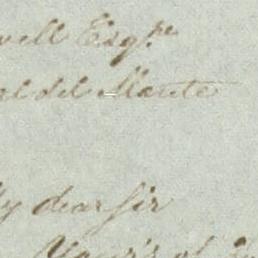 vell Esqre
al del Monte
My dear Sir
Your's of